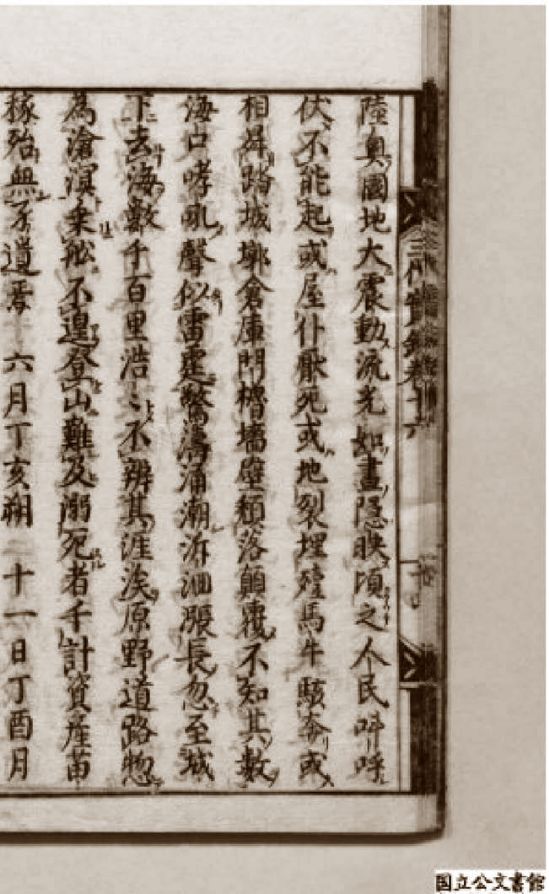 陸奥國地大震動流光如晝隱映頃之人民呌呼
伏不能起或屋仆厭死或地裂埋殪馬牛駭奔或
相昇踏城墎倉庫門櫓墻壁頽落顛覆不知其數
海口哮吼聲似雷霆驚濤涌潮泝洄漲長忽至城
下去海數千百里浩〻不辨其涯涘原野道路惣
為滄溟乗舩不遑登山難及溺死者千計資産苗
稼殆無孑遺焉 六月丁亥朔 二十一日丁酉月
三代實録卷十六
国立公文書館